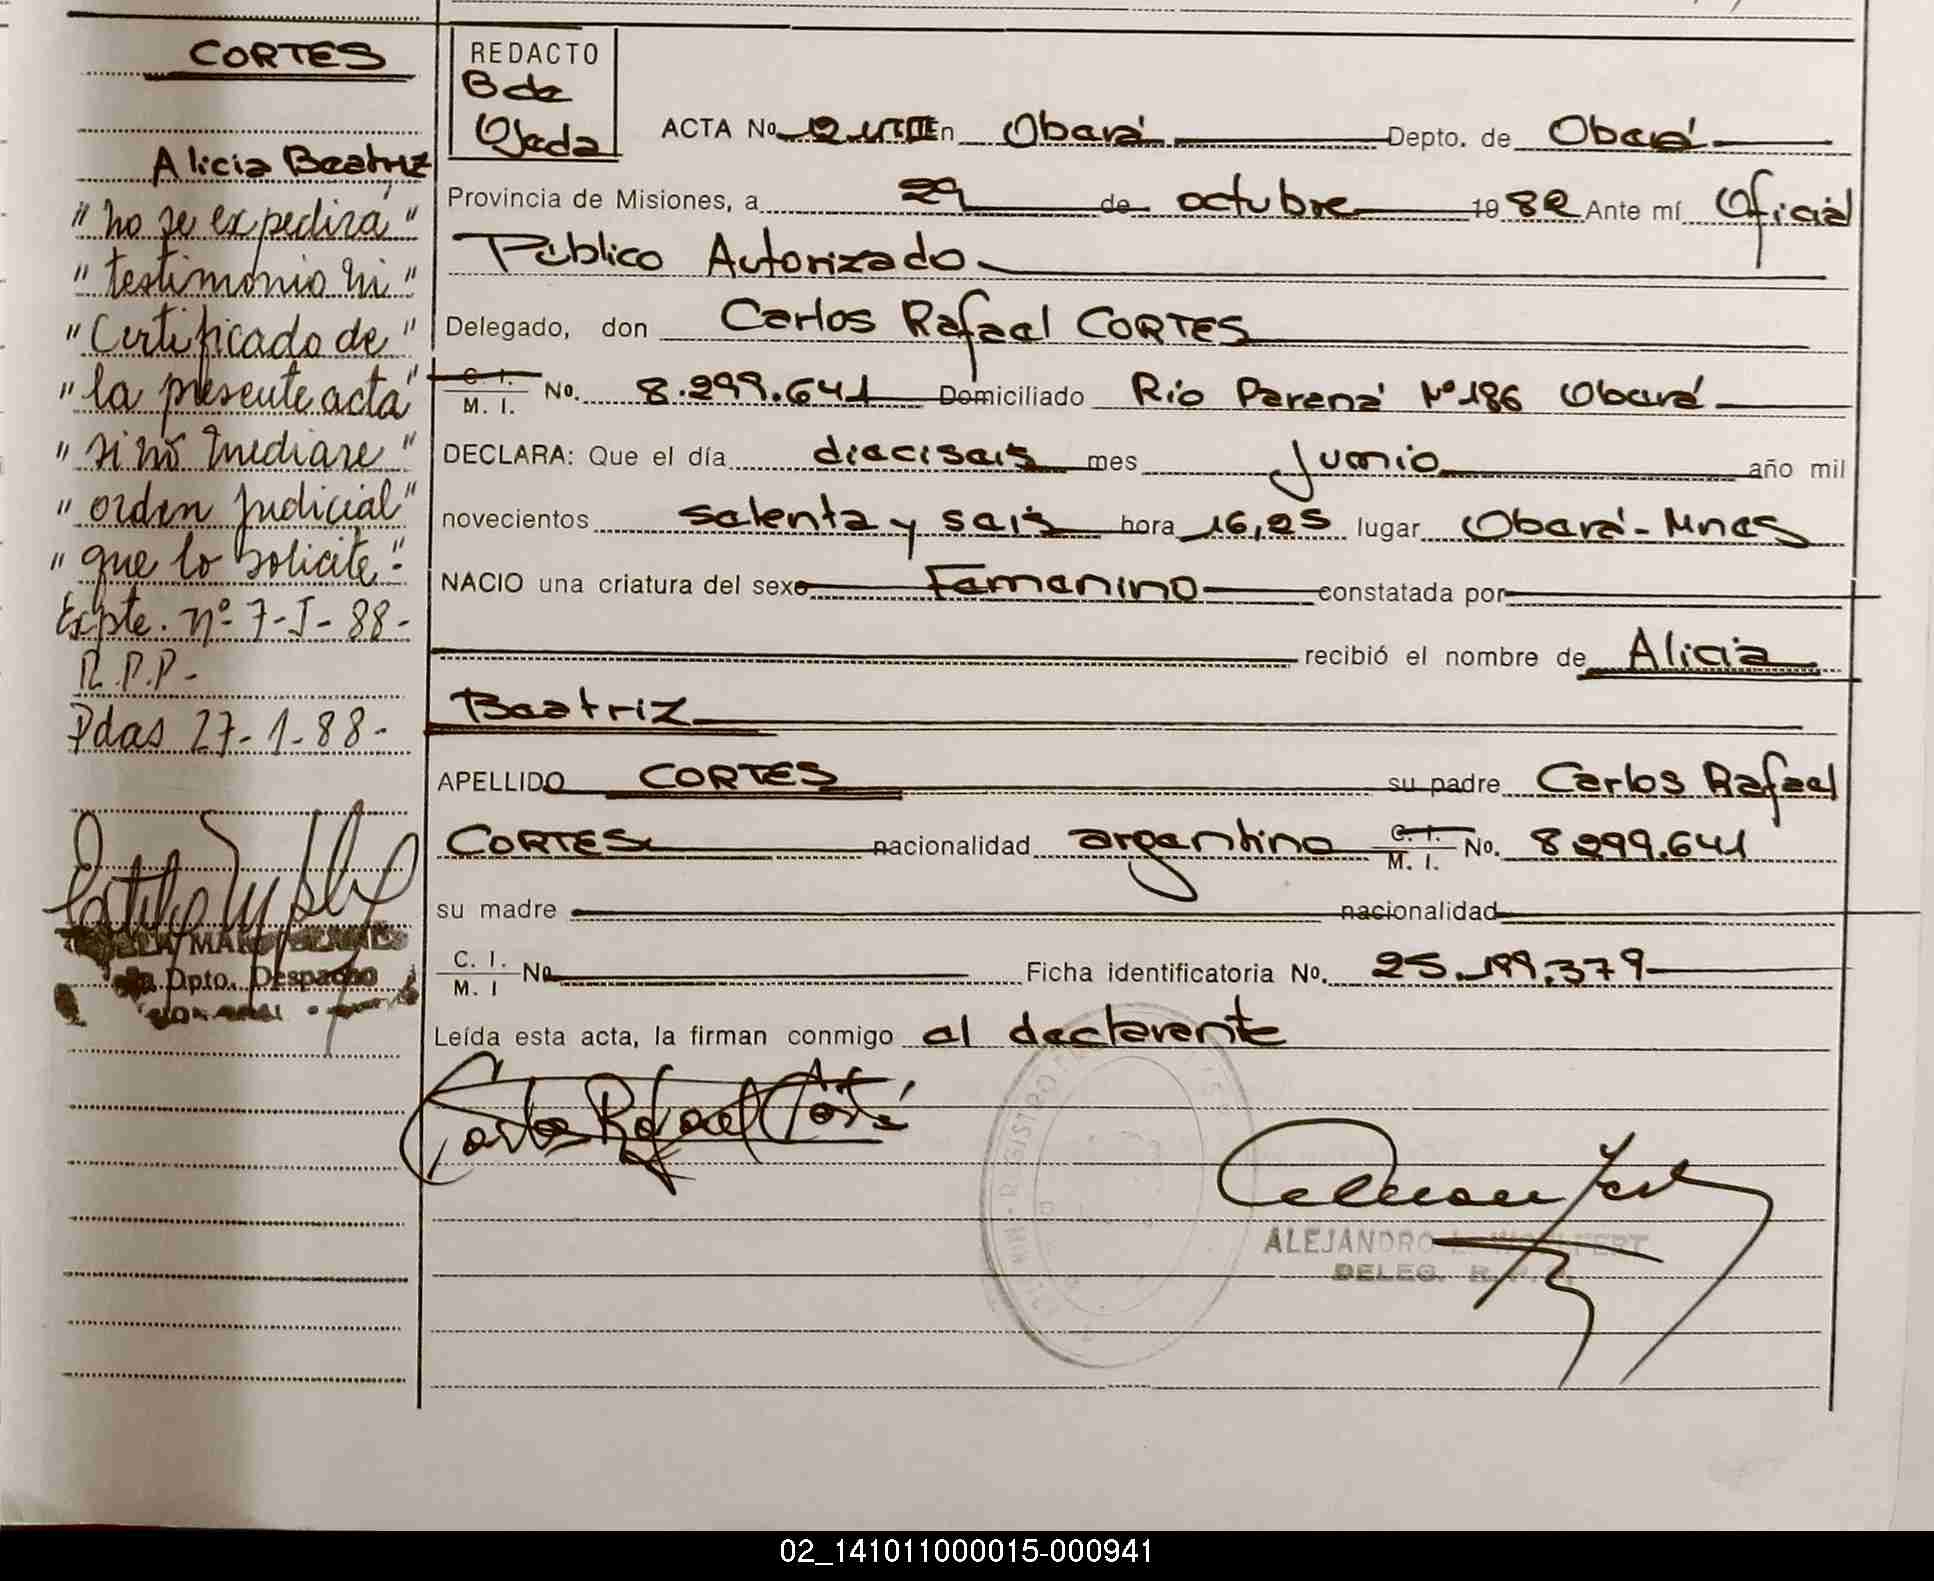 CORTES
Alicia Beatriz
"no se expedirá"
"testimonio ni"
"Certificado de"
"la presente acta"
"si no mediare"
"orden judicial"
"que lo solicite"-
Expte. nº 7-I-88-
R.P.P-
Pdas 27-1-88-
Dpto. Despacho
REDACTO
B de
Ojeda
ACTA No. En Oberá Depto. de Oberá
Provincia de Misiones, a 29 de octubre 1982 Ante mí Oficial
Público Autorizado
Delegado, don Carlos Rafael CORTES
C. I.
M. I. No. 8.299.641 Domiciliado Río Paraná Nº 186 Oberá
DECLARA: Que el día dieciseis mes Junio año mil
novecientos setenta y seis hora 16,25 lugar Oberá - Mnes
NACIO una criatura del sexo Femenino constatada por
recibió el nombre de Alicia
Beatriz
APELLIDO CORTES su padre Carlos Rafael
CORTES nacionalidad argentino C. I.
M. I. No. 8 299.641
su madre nacionalidad
C. I.
M. I No. Ficha identificatoria No. 25.199.379
Leída esta acta, la firman conmigo el declarante
Carlos Rafael Cortés
ALEJANDRO
DELEG. R. P.
02_141011000015-000941